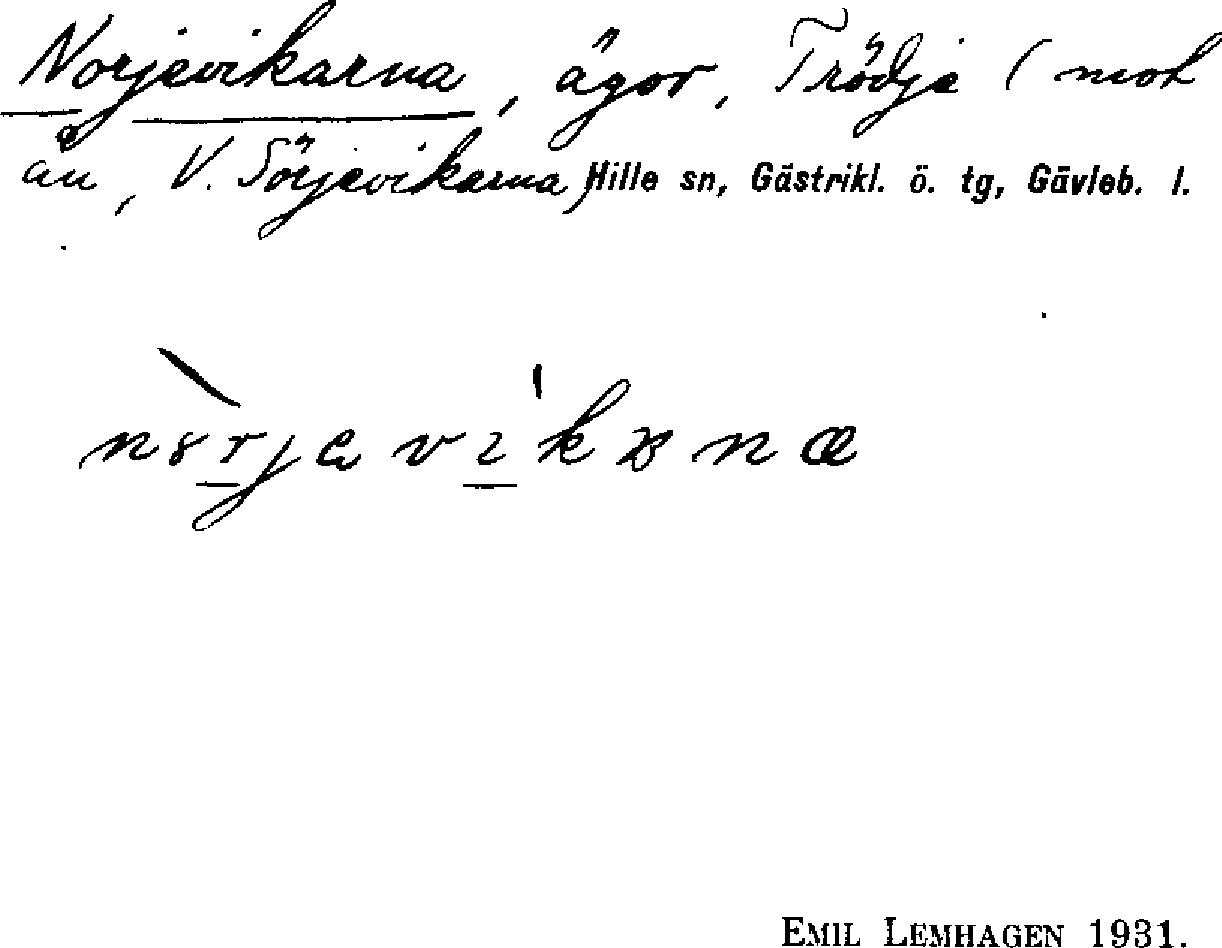 Norjevikarna, ägor, Trödje (mot
ån, V. Sörjevikarna) Hille sn, Gästrikl. ö. tg, Gävleb. l.
EMIL LEMHAGEN 1931.